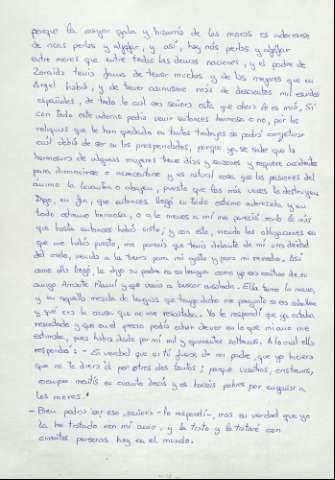 porque la mayor gala y bizarría de las moras es adornarse
de ricas perlas y aljófar, y así, hay más perlas y aljófar
entre moros que entre todas las demás naciones, y el padre de
Zoraida tenía fama de tener muchas y de las mejores que en
Argel había, y de tener asimismo más de doscientos mil escudos
españoles, de todo lo cual era señora esta que ahora lo es mía. Si
con todo este adorno podía venir entonces hermosa o no, por las
reliquias que le han quedado en tantos trabajos se podrá conjeturar
cuál debía de ser en las prosperidades, porque ya se sabe que la
hermosura de algunas mujeres tiene días y sazones y requiere accidentes
para disminuirse o acrecentarse y es natural cosa que las pasiones del
ánimo la levanten o abajen, puesto que las más veces la destruyen.
Digo, en fin, que entonces llegó en todo extremo aderezada y en
todo extremo hermosa, o a lo menos a mí me pareció serlo la más
que hasta entonces había visto; y con esto, viendo las obligaciones en
que me había puesto, me parecía que tenía delante de mí una deidad
del cielo, venida a la tierra para mi gusto y para mi remedio. Así
como ella llegó, le dijo su padre en su lengua como yo era cautivo de su
amigo Arnaute Mamí y que venía a buscar ensalada. Ella tomó la mano,
y en aquella mezcla de lenguas que tengo dicho me preguntó si era caballero
y qué era la causa que no me rescataba. Yo le respondí que ya estaba
rescatado y que en el precio podía echar de ver en lo que mi amo me
estimaba, pues había dado por mí mil y quinientos zoltanís. A lo cual ella
respondió: - En verdad que si tú fueras de mi padre, que yo hiciera
que no te diera él por otros dos tantos; porque vosotros, cristianos,
siempre mentís en cuanto decís y os hacéis pobres por engañar a
los moros.
- Bien podría ser eso, señora - le respondí-, mas en verdad que yo
la he tratado con mi amo, y la trato y la trataré con
cuantas personas hay en el mundo.